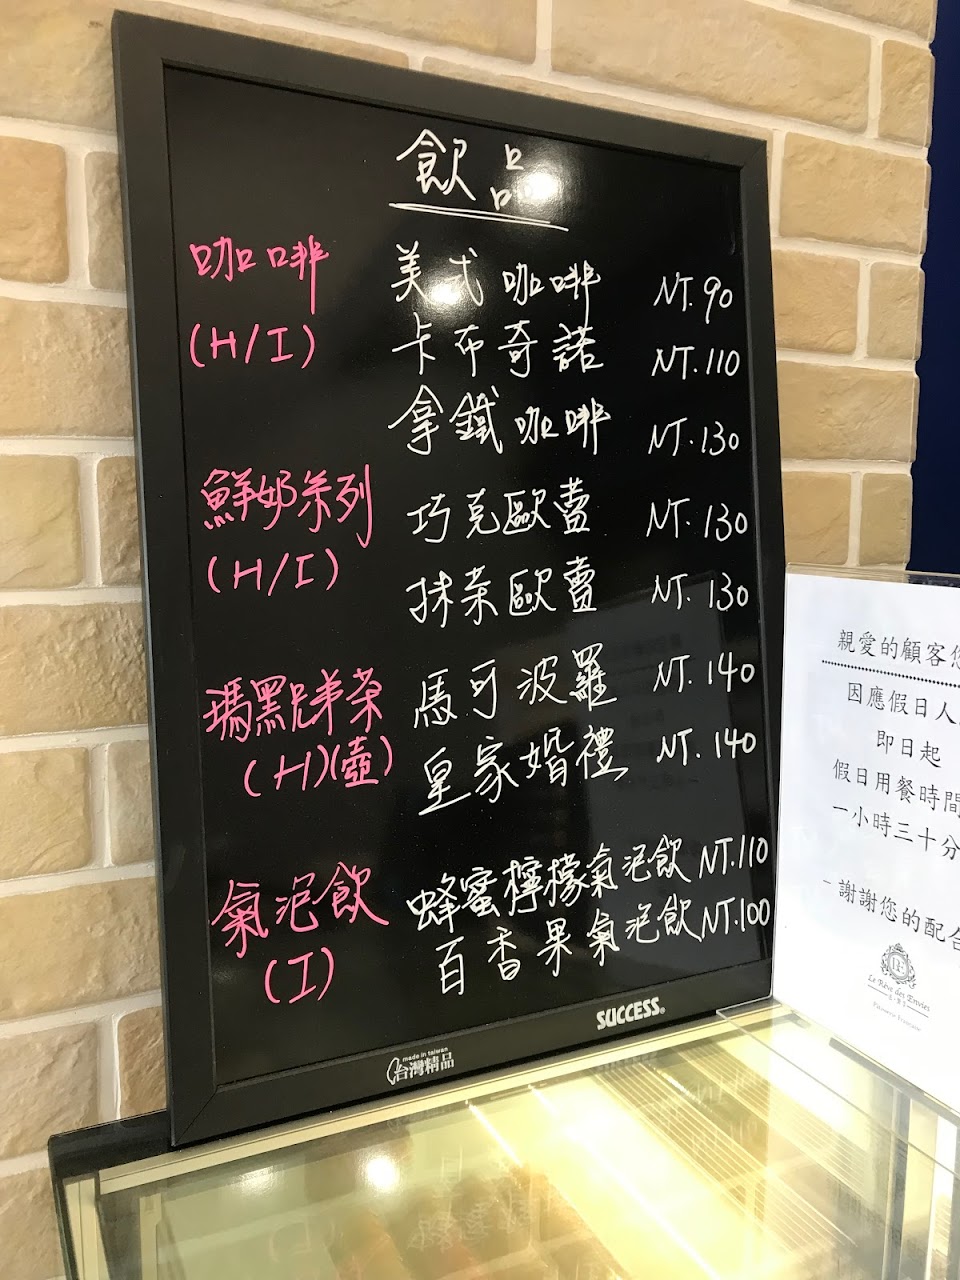 飲品
咖啡 美式咖啡 NT.90
(H/I) 卡布奇諾 NT.110
拿鐵咖啡 NT.130
鮮奶系列 巧克歐蕾 NT.130
(H/I) 抹茶歐蕾 NT.130
瑪黑兄弟茶 馬可波羅 NT.140
(H)(壺) 皇家婚禮 NT.140
氣泡飲 蜂蜜檸檬氣泡飲 NT.110
(I) 百香果氣泡飲 NT.100
SUCCESS®
made in taiwan
台灣精品
親愛的顧客您
因應假日人
即日起
假日用餐時間
一小時三十分
-謝謝您的配合
Le Rêve des Envies
Pâtisserie Française